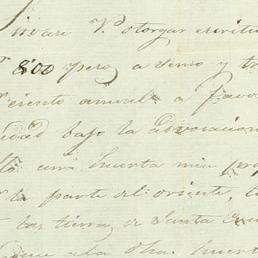 V. otorgar escritu
800 peso, a senso y tr
ciento anual, a favo
dad bajo la advocacion
una huerta mia pro
la parte del oriente,
las tierra, de Santa
a la dha. huerta